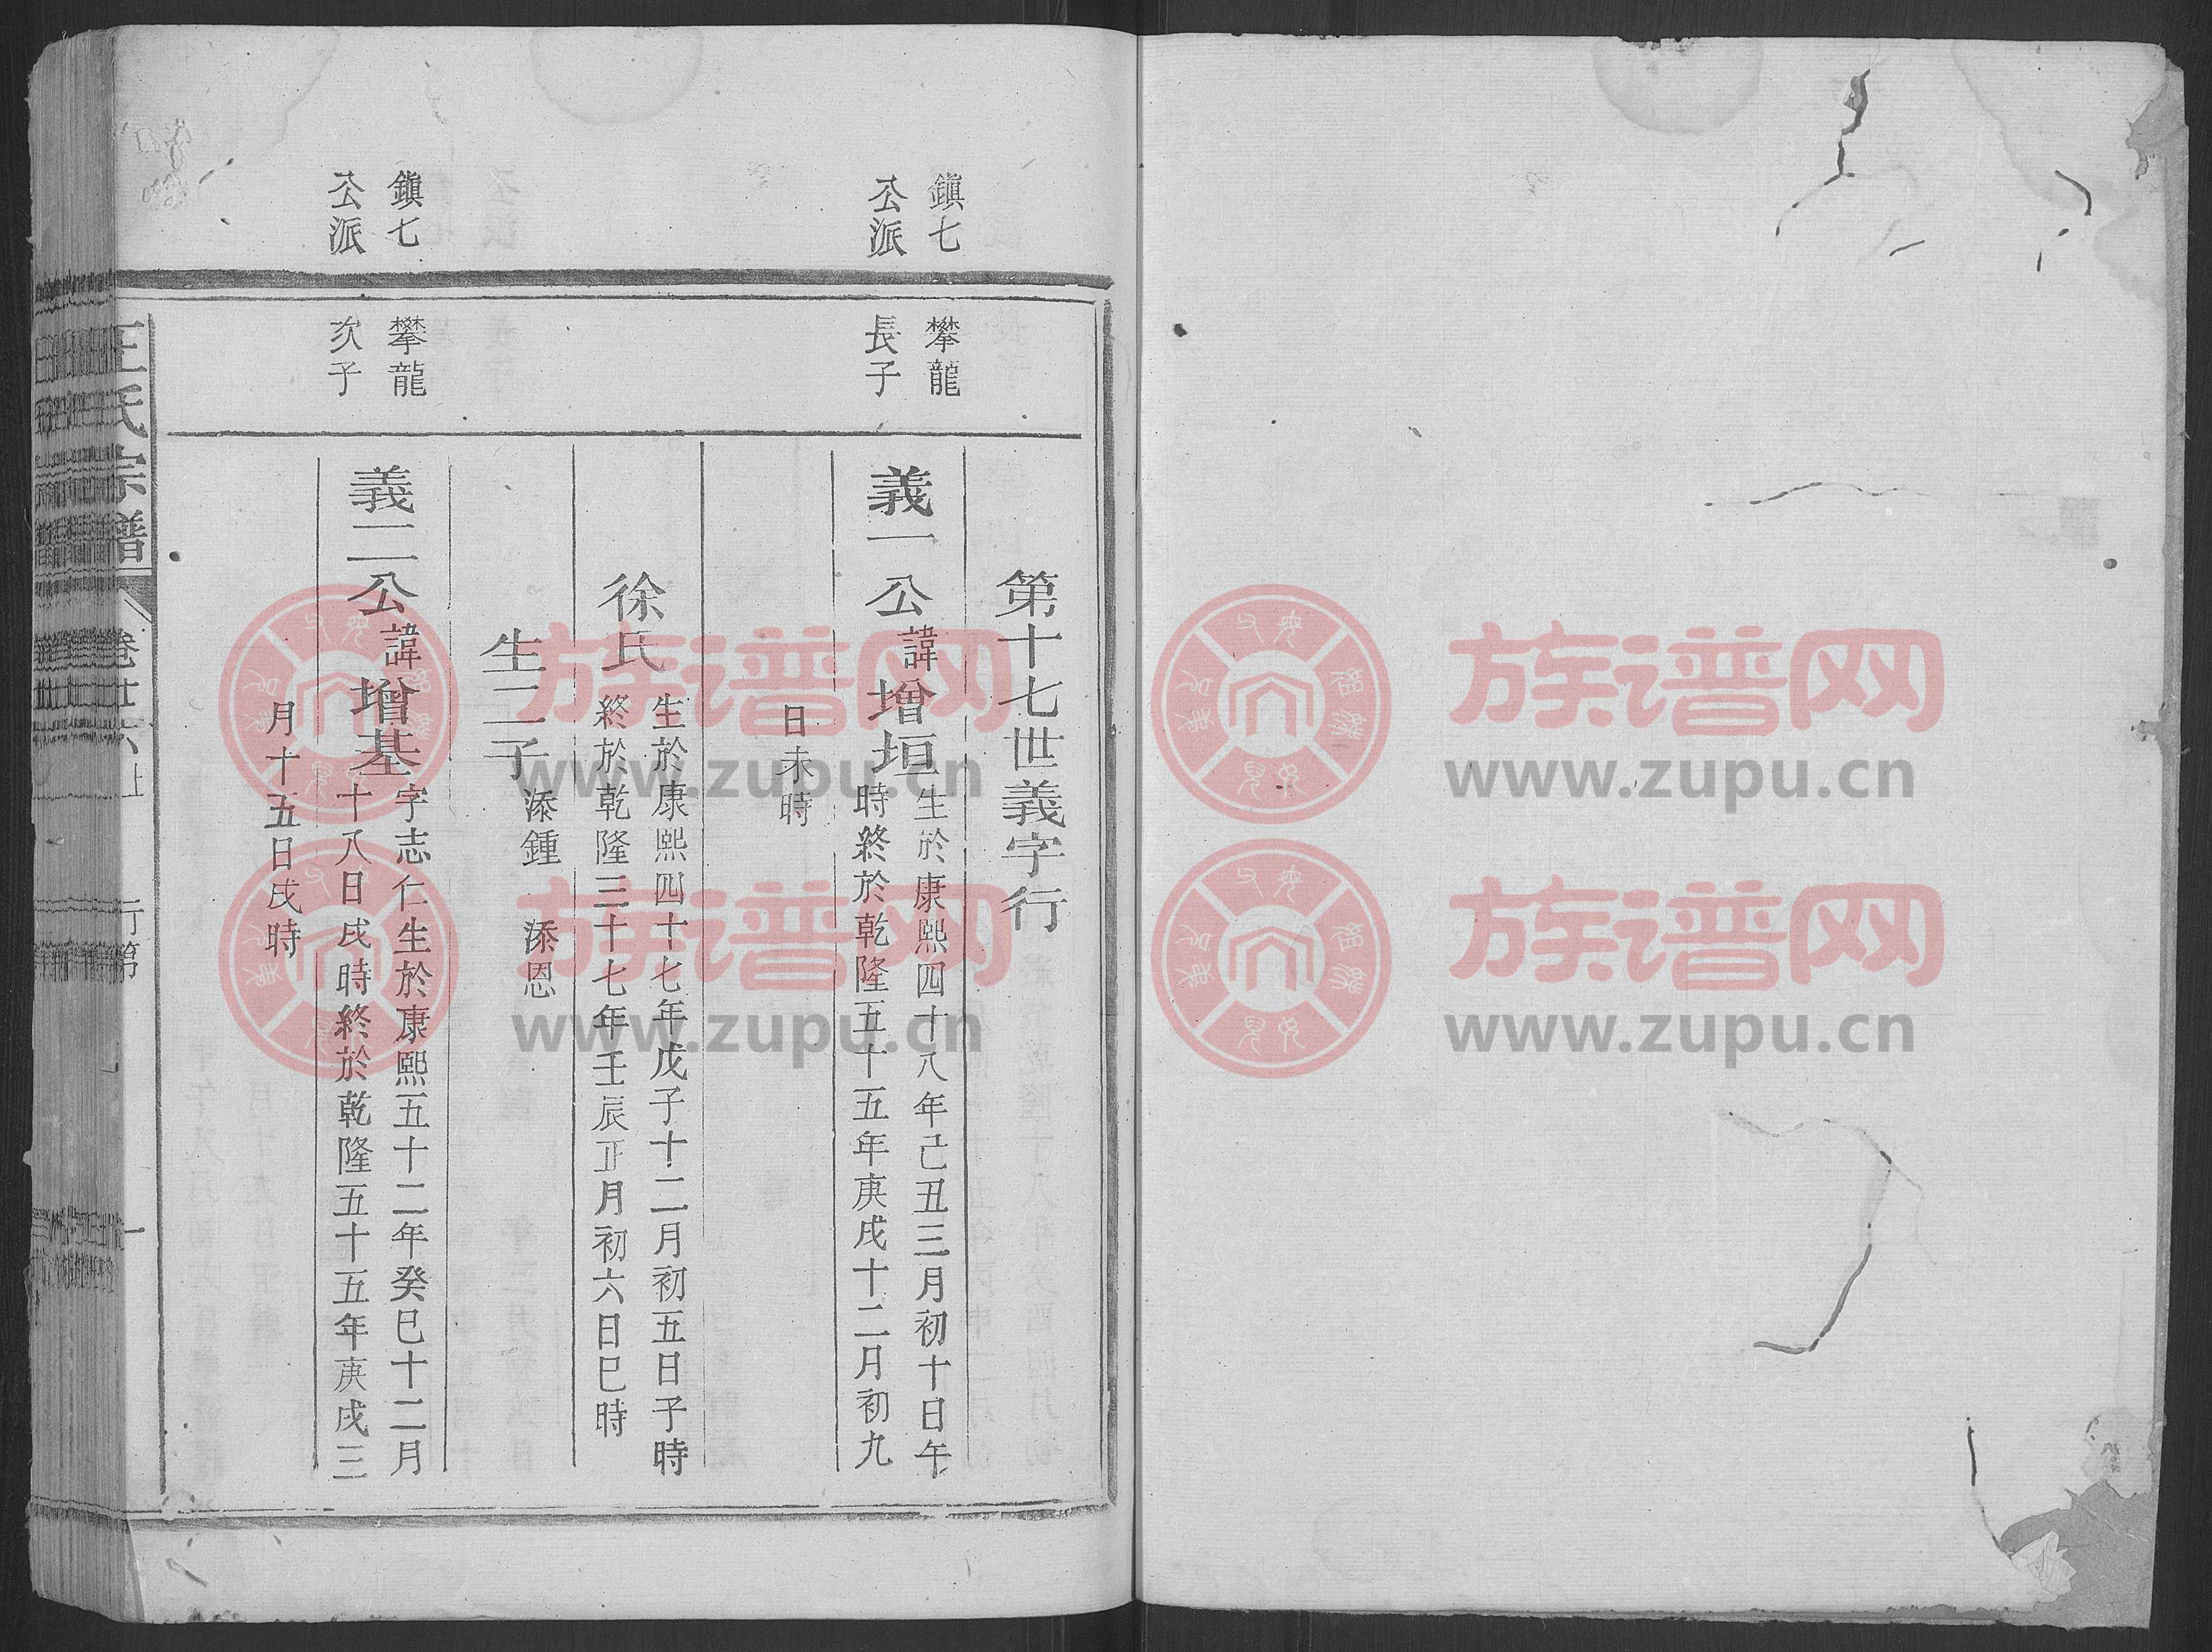 第十七世義字行
鎮七
公派
攀龍
長子
義一公諱增垣
生於康熙四十八年己丑三月初十日午
時終於乾隆五十五年庚戌十二月初九
日未時
徐氏
生於康熙四十七年戊子十二月初五日子時
終於乾隆三十七年壬辰正月初六日巳時
生二子
添鍾 添恩
鎮七
公派
攀龍
次子
義二公諱增基
字志仁生於康熙五十二年癸巳十二月
十八日戌時終於乾隆五十五年庚戌三
月十五日戌時
王氏宗譜
卷廿六上
行第
一
族谱网
www.zupu.cn
族谱网
www.zupu.cn
族谱网
www.zupu.cn
族谱网
www.zupu.cn